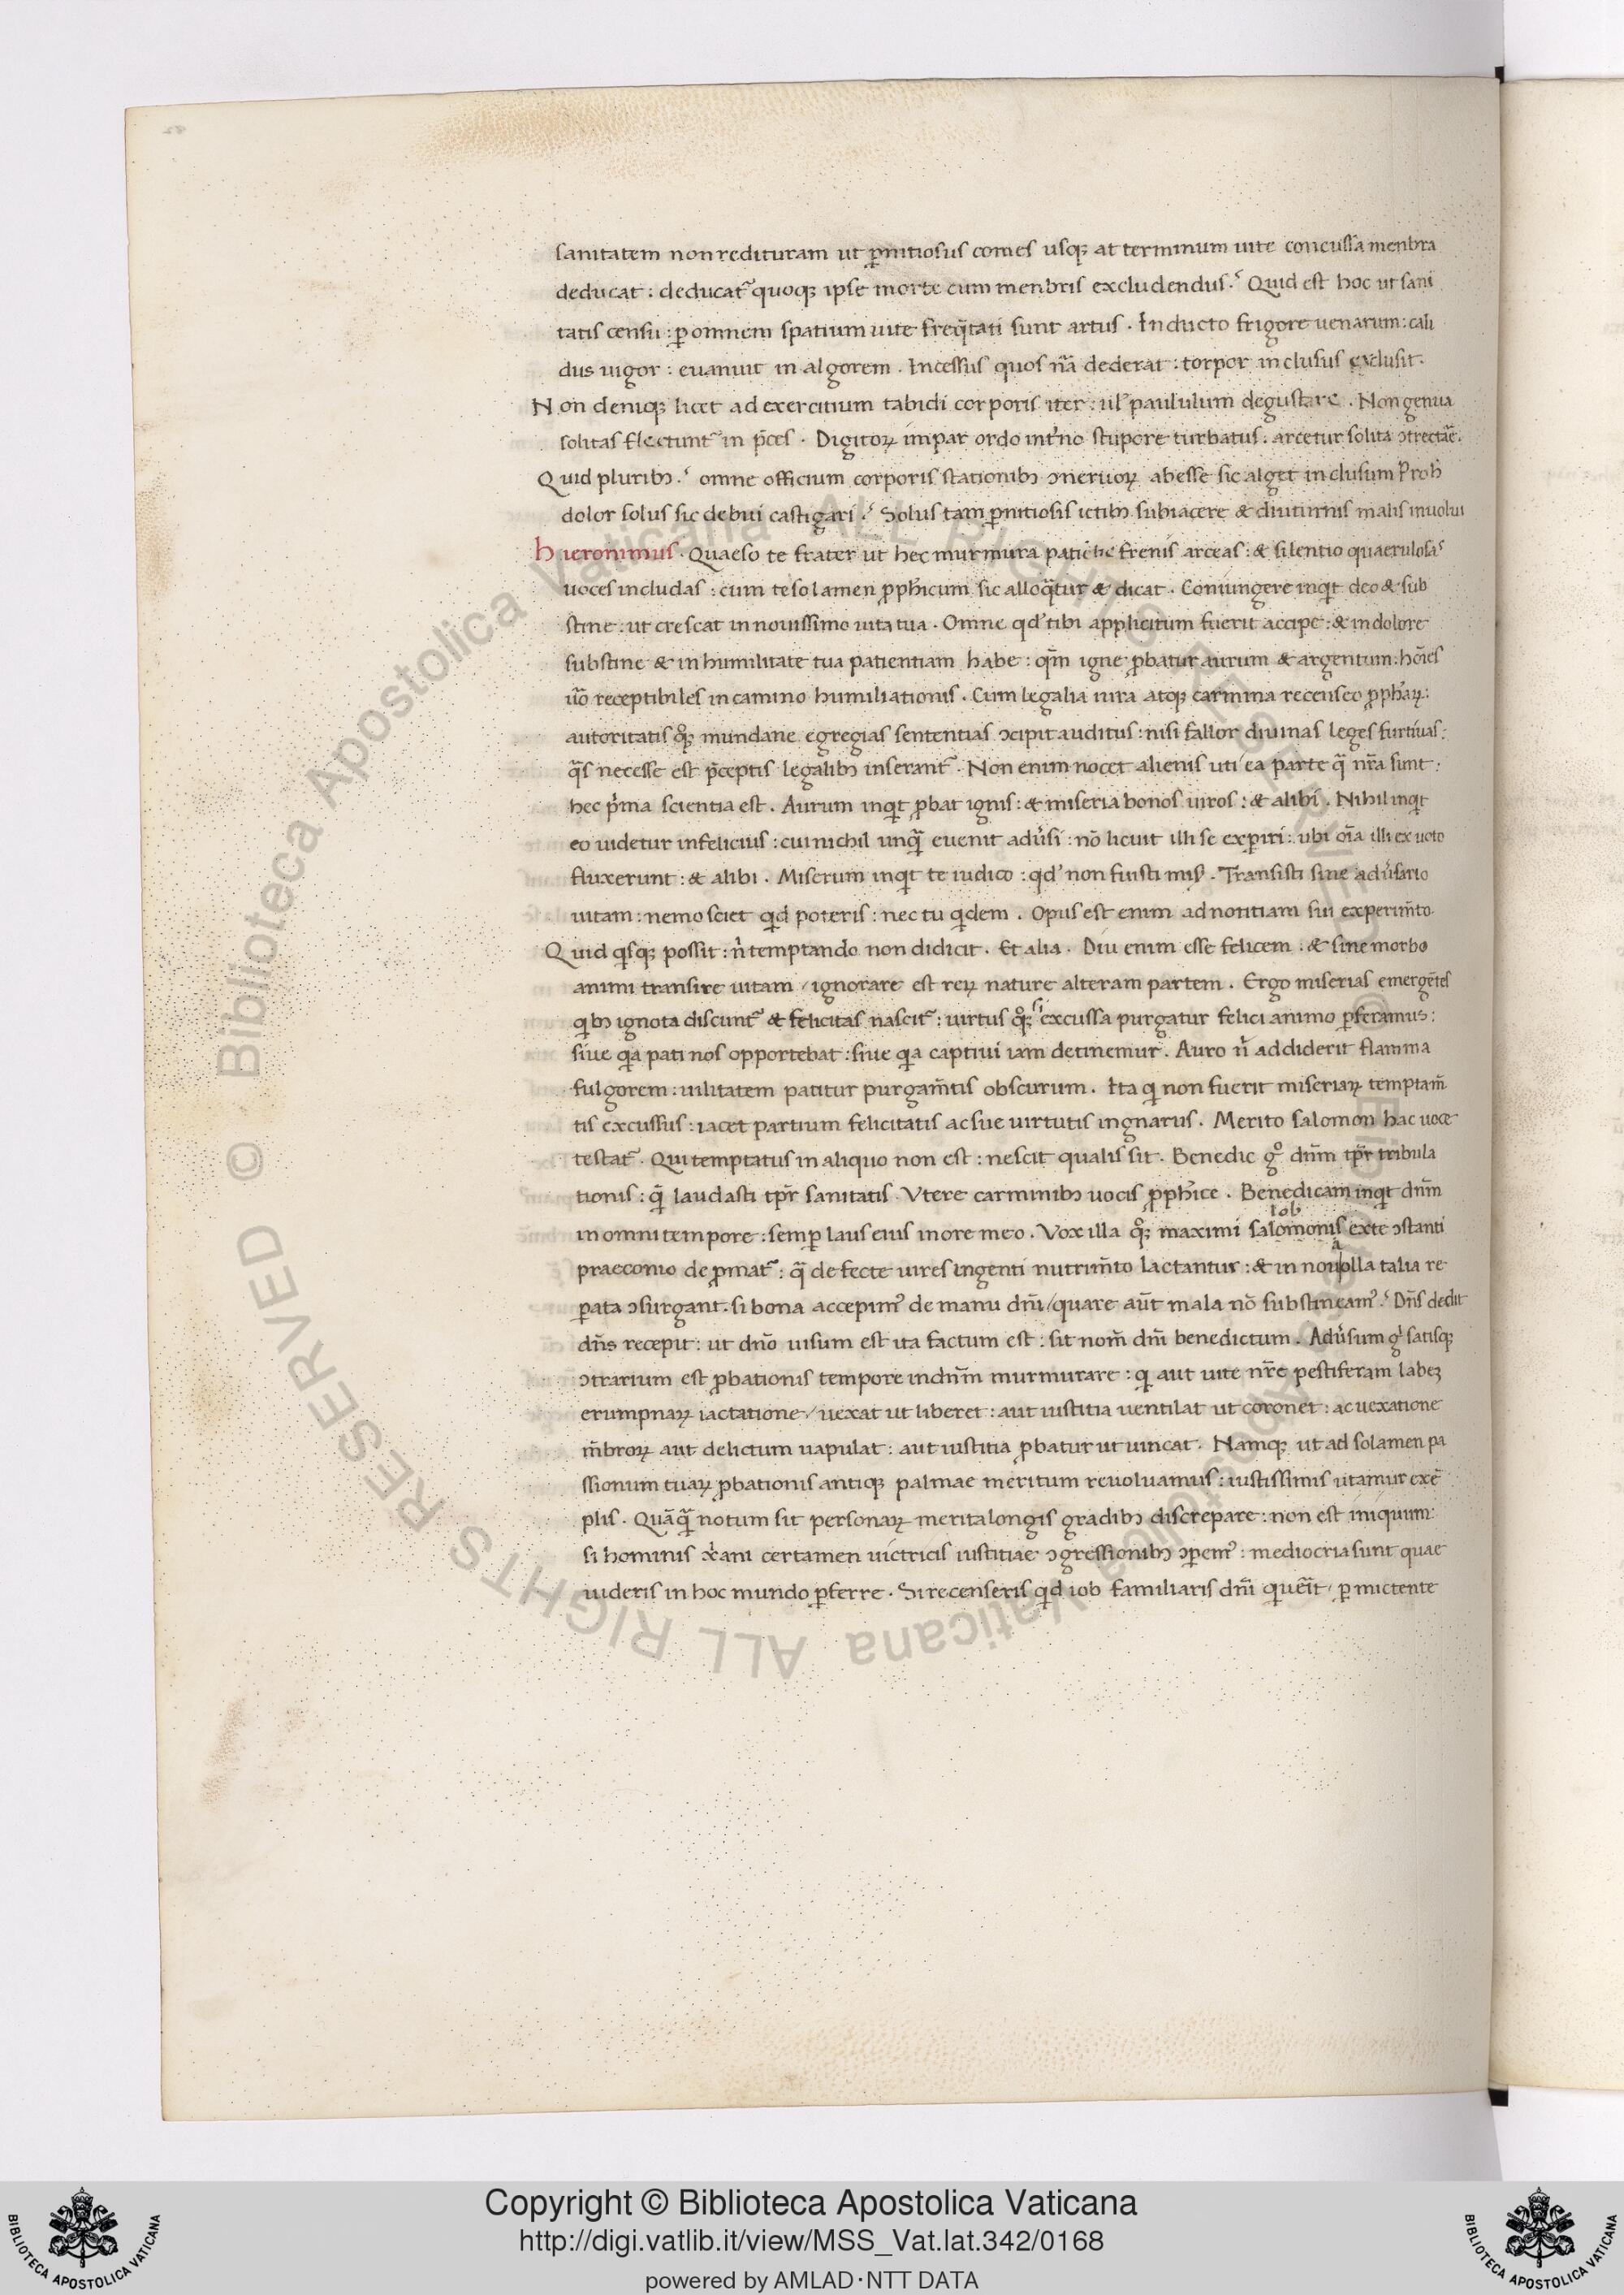 sanitatem non redituram ut ꝑnitiosus comes usqꝫ at terminum uite concussa menbra
deducat : deducat᷑ quoqꝫ ipse morte cum menbris excludendus ? Quid est hoc ut sani
tatis censu : ꝑ omnem spatium uite freq̄tati sunt artus . Inducto frigore uenarum : cali
dus uigor : euanuit in algorem . Incessus quos nā dederat : torpor inclusus exclusit .
Non deniqꝫ licet ad exercitium tabidi corporis iter : ul̕ paululum degustare . Non genua
solitas flectunt᷑ in p̄ces . Digitoꝝ impar ordo int̕no stupore turbatus . arcetur solita ↄtrectāe .
Quid pluribꝫ ? omne officium corporis stationibꝫ ↄneruoꝝ abesse sic alget inclusum Proh̄
dolor solus sic debui castigari ? Solus tam ꝑnitiosis ictibꝫ subiacere & diuturnis malis inuolui
Hieronimus . Quaeso te frater ut hec murmura patiētie frenis arceas : & silentio quaerulosas
uoces includas : cum te solamen ꝓph̄icum sic alloq̄tur & dicat . Coniungere inqt deo & sub
stine : ut crescat in nouissimo uita tua . Omne qd̕ tibi applicitum fuerit accipe : & in dolore
substine & in humilitate tua patientiam habe : qm̄ igne ꝓbatur aurum & argentum : hōies
uō receptibiles in camino humiliationis . Cum legalia iura atqꝫ carmina recenseo ꝓph̄aꝝ :
autoritatis qͦꝫ mundane egregias sententias ↄcipit auditus : nisi fallor diuinas leges furtiuas :
q̄s necesse est p̄ceptis legalibꝫ inserant᷑ . Non enim nocet alienis uti ea parte q̄ nr̄a sunt :
hec p̕ma scientia est . Aurum inqt ꝓbat ignis : & miseria bonos uiros : & alibi . Nihil inqt
eo uidetur infelicius : cui nichil unq̄ euenit adu̕si : nō licuit illi se exꝑiri : ubi oīa illi ex uoto
fluxerunt : & alibi . Miserum inqt te iudico : qd̕ non fuisti mis̕ . Transisti sine adu̕sario
uitam : nemo sciet qd poteris : nec tu qdem . Opus est enim ad notitiam sui experim̄to .
Quid qsqꝫ possit : n̕ temptando non didicit . Et alia . Diu enim esse felicem . & sine morbo
animi transire uitam / ignorare est reꝝ nature alteram partem . Ergo miserias emergētes
qbꝫ ignota discunt᷑ & felicitas nascit᷑ : uirtus qͦꝫ si excussa purgatur felici animo ꝑferamus :
siue qa pati nos opportebat : siue qa captiui iam detinemur . Auro n̕ addiderit flamma
fulgorem : uilitatem patitur purgam̄tis obscurum . Ita q non fuerit miseriaꝝ temptam̄
tis excussus : iacet partium felicitatis ac sue uirtutis ingnarus . Merito salomon hac uoce
testat᷑ . Qui temptatus in aliquo non est : nescit qualis sit . Benedic gͦ dnm̄ tpr̄ tribula
tionis : q̄ laudasti tpr̄ sanitatis . Vtere carminibꝫ uocis ꝓph̄ice . Benedicam inqt dnm̄
in omni tempore : semꝑ laus eius in ore meo . Vox illa qͦꝫ maximi salomonis iob ex te ↄstanti
praeconio de ꝓmat᷑ : q̄ defecte uires ingenti nutrim̄to lactantur : & in noua olla talia re
ꝑata ↄsurgant . si bona accepim᷒ de manu dnī / quare aūt mala nō substineam᷒ ? Dn̄s dedit
dn̄s recepit : ut dnō uisum est ita factum est : sit nom̄ dnī benedictum . Adu̕sum gͥ satisqꝫ
ↄtrarium est ꝓbationis tempore in dnm̄ murmurare : q aut uite nr̄e pestiferam labeꝫ
erumpnaꝝ iactatione / uexat ut liberet : aut iustitia uentilat ut coronet : ac uexatione
m̄broꝝ aut delictum uapulat : aut iustitia ꝓbatur ut uincat . Namqꝫ ut ad solamen pa
ssionum tuaꝝ ꝓbationis antiqꝫ palmae meritum reuoluamus : iustissimis utamur exē
plis . Quāq̄ notum sit personaꝝ merita longis gradibꝫ discrepare : non est iniquum :
si hominis x̄ani certamen uictricis iustitiae ↄgressionibꝫ ↄꝑem᷒ : mediocria sunt quae
uideris in hoc mundo ꝑferre . Si recenseris qd iob familiaris dnī ꝑmictente
Copyright © Biblioteca Apostolica Vaticana
http://digi.vatlib.it/view/MSS_Vat.lat.342/0168
powered by AMLAD·NTT DATA
BIBLIOTECA APOSTOLICA VATICANA
BIBLIOTECA APOSTOLICA VATICANA
© Biblioteca Apostolica Vaticana ALL RIGHTS RESERVED
© Biblioteca Apostolica Vaticana ALL RIGHTS RESERVED